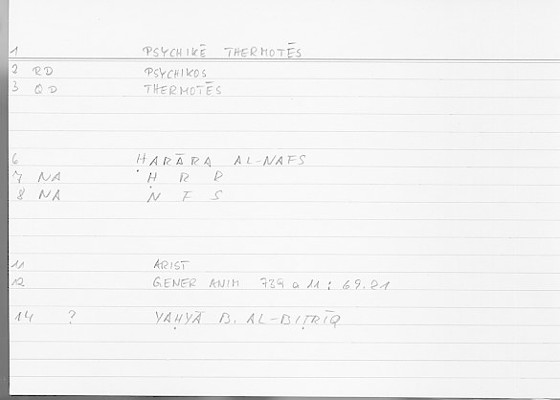 1 PSYCHIKĒ THERMOTĒS
2 RD PSYCHIKOS
3 QD THERMOTĒS
6 ḤARĀRA AL-NAFS
7 NA Ḥ R R
8 NA N F S
11 ARIST
12 GENER ANIM 739 a 11 : 69.21
14 ? YAḤYĀ B. AL-BIṬRĪQ